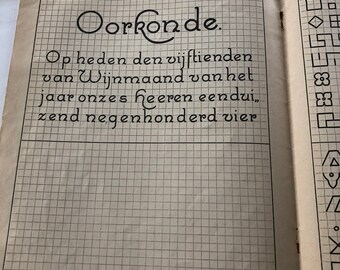 Oorkonde.
Op heden den vijftienden
van Wijnmaand van het
jaar onzes heeren eendui„
zend negenhonderd vier